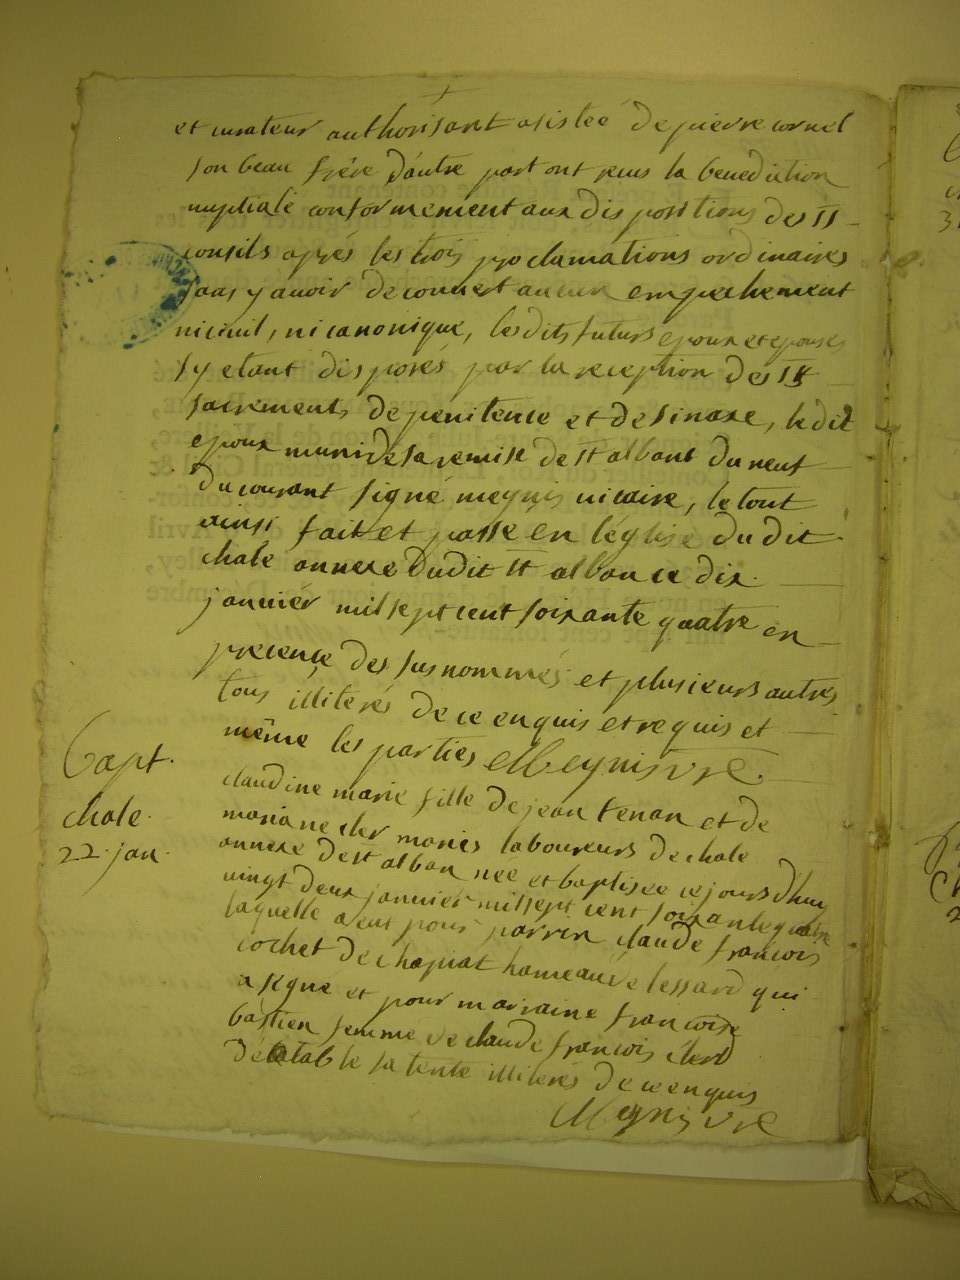 et curateur authorisant asistée de pierre cornet
son beau frére d'autre part ont reçus la benediction
nuptiale conformement aux dispositions des SS
conseils aprés les trois proclamations ordinaires
sans y avoir decouvert aucun empechement
ni civil, ni canonique, les dits futurs epoux et epouses
s'y etant disposés par la reception des SS
sacrements de penitence et de sinaxe, le dit
epoux muni de sa remise de St alban du neuf
du courant signé meynis vicaire, le tout
ainsi fait et passé en l'église du dit
chale annexe dudit St alban ce dix
janvier mil sept cent soixante quatre en
presence des susnommés et plusieurs autres
tous illiterés de ce enquis et requis et
même les parties Meynis vre
Bapt.
chale
22 jan
claudine marie fille de jean tenan et de
mariane cler mariés laboureurs de chale
annexe de st alban née et baptisée ce jours d'huy
vingt deux janvier mil sept cent soixante quatre
laquelle a eut pour parrin claude françois
cochet de chapiat hameau de lessard qui
a signé et pour marraine françoise
bastien femme de claude françois clerd
de latable sa tente illiterés de ce enquis
Meynis vre